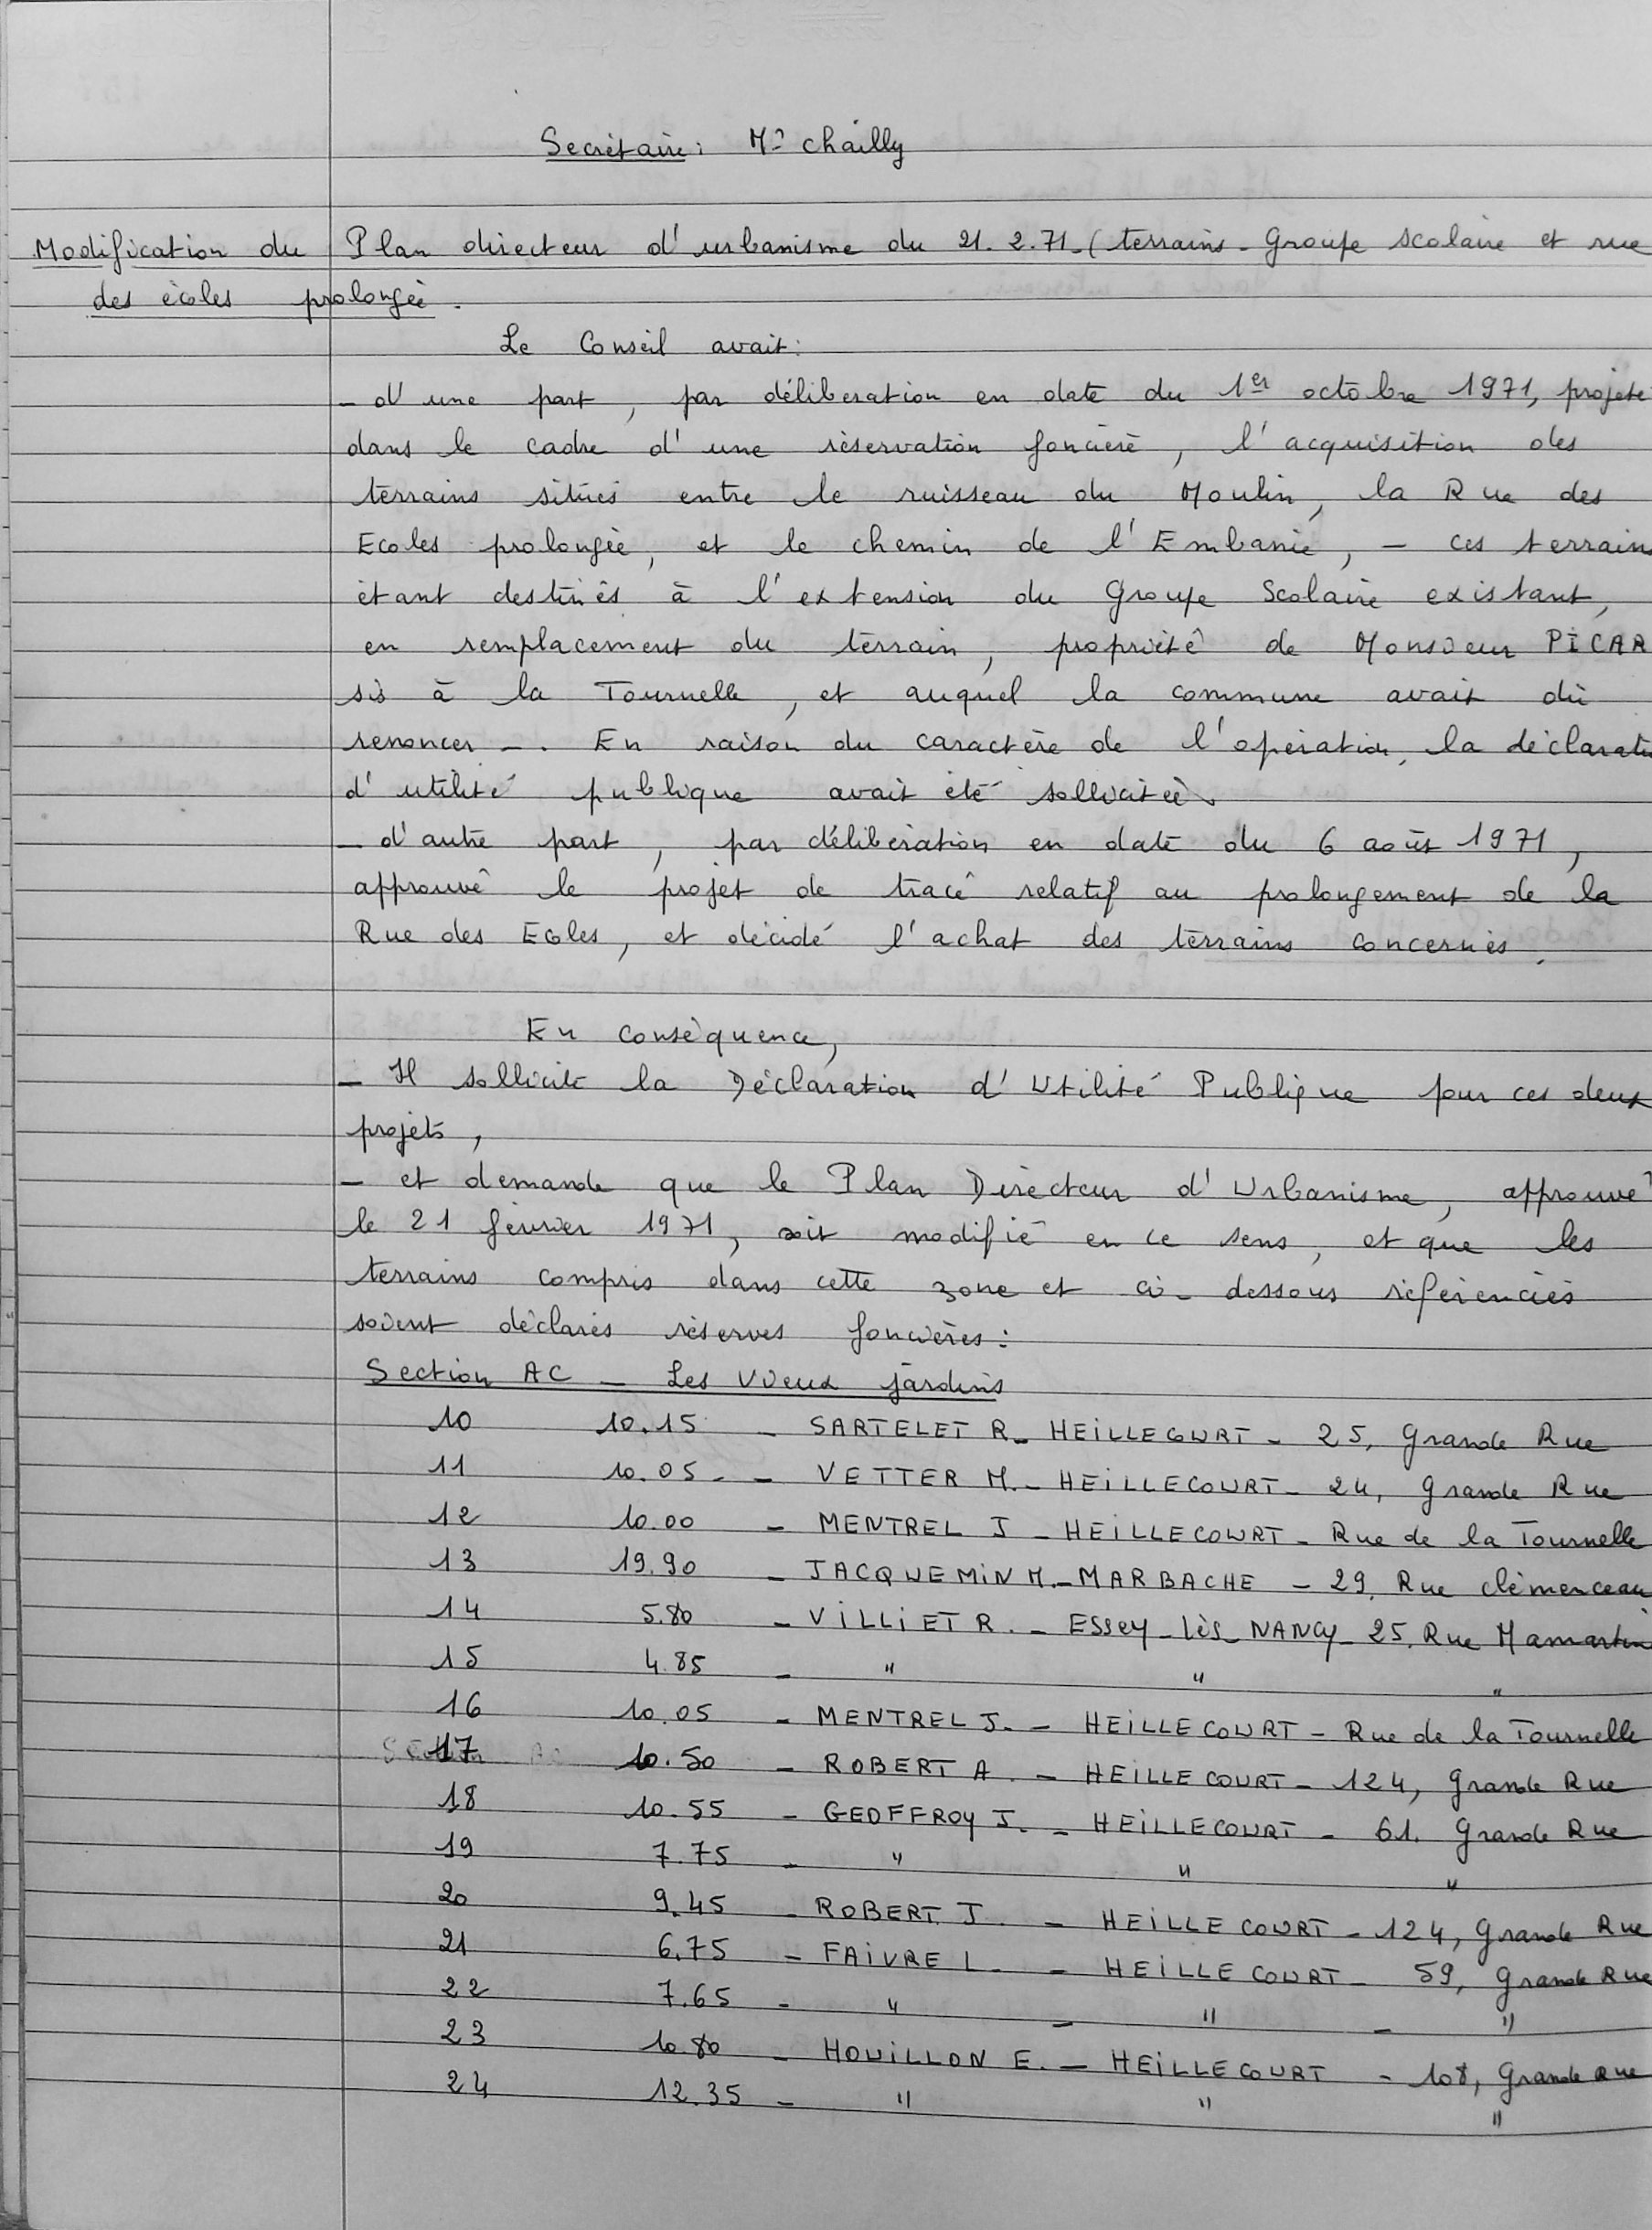 Secrétaire : Mr Chailly
Modification du Plan directeur d'urbanisme du 21.2.71 - (terrains - Groupe scolaire et rue
des écoles prolongée.
Le Conseil avait :
- d'une part, par délibération en date du 1er octobre 1971, projeté
dans le cadre d'une réservation foncière, l'acquisition des
terrains situés entre le ruisseau du Moulin, la Rue des
Ecoles prolongée, et le chemin de l'Embanie, - ces terrains
étant destinés à l'extension du Groupe Scolaire existant,
en remplacement du terrain, propriété de Monsieur PICAR
sis à la Tournelle, et auquel la commune avait dû
renoncer -. En raison du caractère de l'opération, la déclaratio
d'utilité publique avait été sollicitée.
- d'autre part, par délibération en date du 6 août 1971,
approuvé le projet de tracé relatif au prolongement de la
Rue des Ecoles, et décidé l'achat des terrains concernés.
En conséquence,
- Il sollicite la Déclaration d'Utilité Publique pour ces deux
projets,
- et demande que le Plan Directeur d'Urbanisme, approuvé
le 21 février 1971, soit modifié en ce sens, et que les
terrains compris dans cette zone et ci-dessous référenciés
soient déclarés réserves foncières :
Section AC - Les Vieux jardins
10 10.15 - SARTELET R - HEILLECOURT - 25, Grande Rue
11 10.05 - - VETTER M. - HEILLECOURT - 24, Grande Rue
12 10.00 - MENTREL J - HEILLECOURT - Rue de la Tournelle
13 19.90 - JACQUEMIN M. - MARBACHE - 29, Rue Clémenceau
14 5.80 - VILLIET R. - ESSEY-lès-NANCY - 25, Rue Mamartin
15 4.85 - " " "
16 10.05 - MENTREL J. - HEILLECOURT - Rue de la Tournelle
17 10.50 - ROBERT A. - HEILLECOURT - 124, Grande Rue
18 10.55 - GEOFFROY J. - HEILLECOURT - 61, Grande Rue
19 7.75 - " " "
20 9.45 - ROBERT J. - HEILLECOURT - 124, Grande Rue
21 6.75 - FAIVRE L. - HEILLECOURT - 59, Grande Rue
22 7.65 - " - " - "
23 10.80 - HOUILLON E. - HEILLECOURT - 108, Grande Rue
24 12.35 - " " "